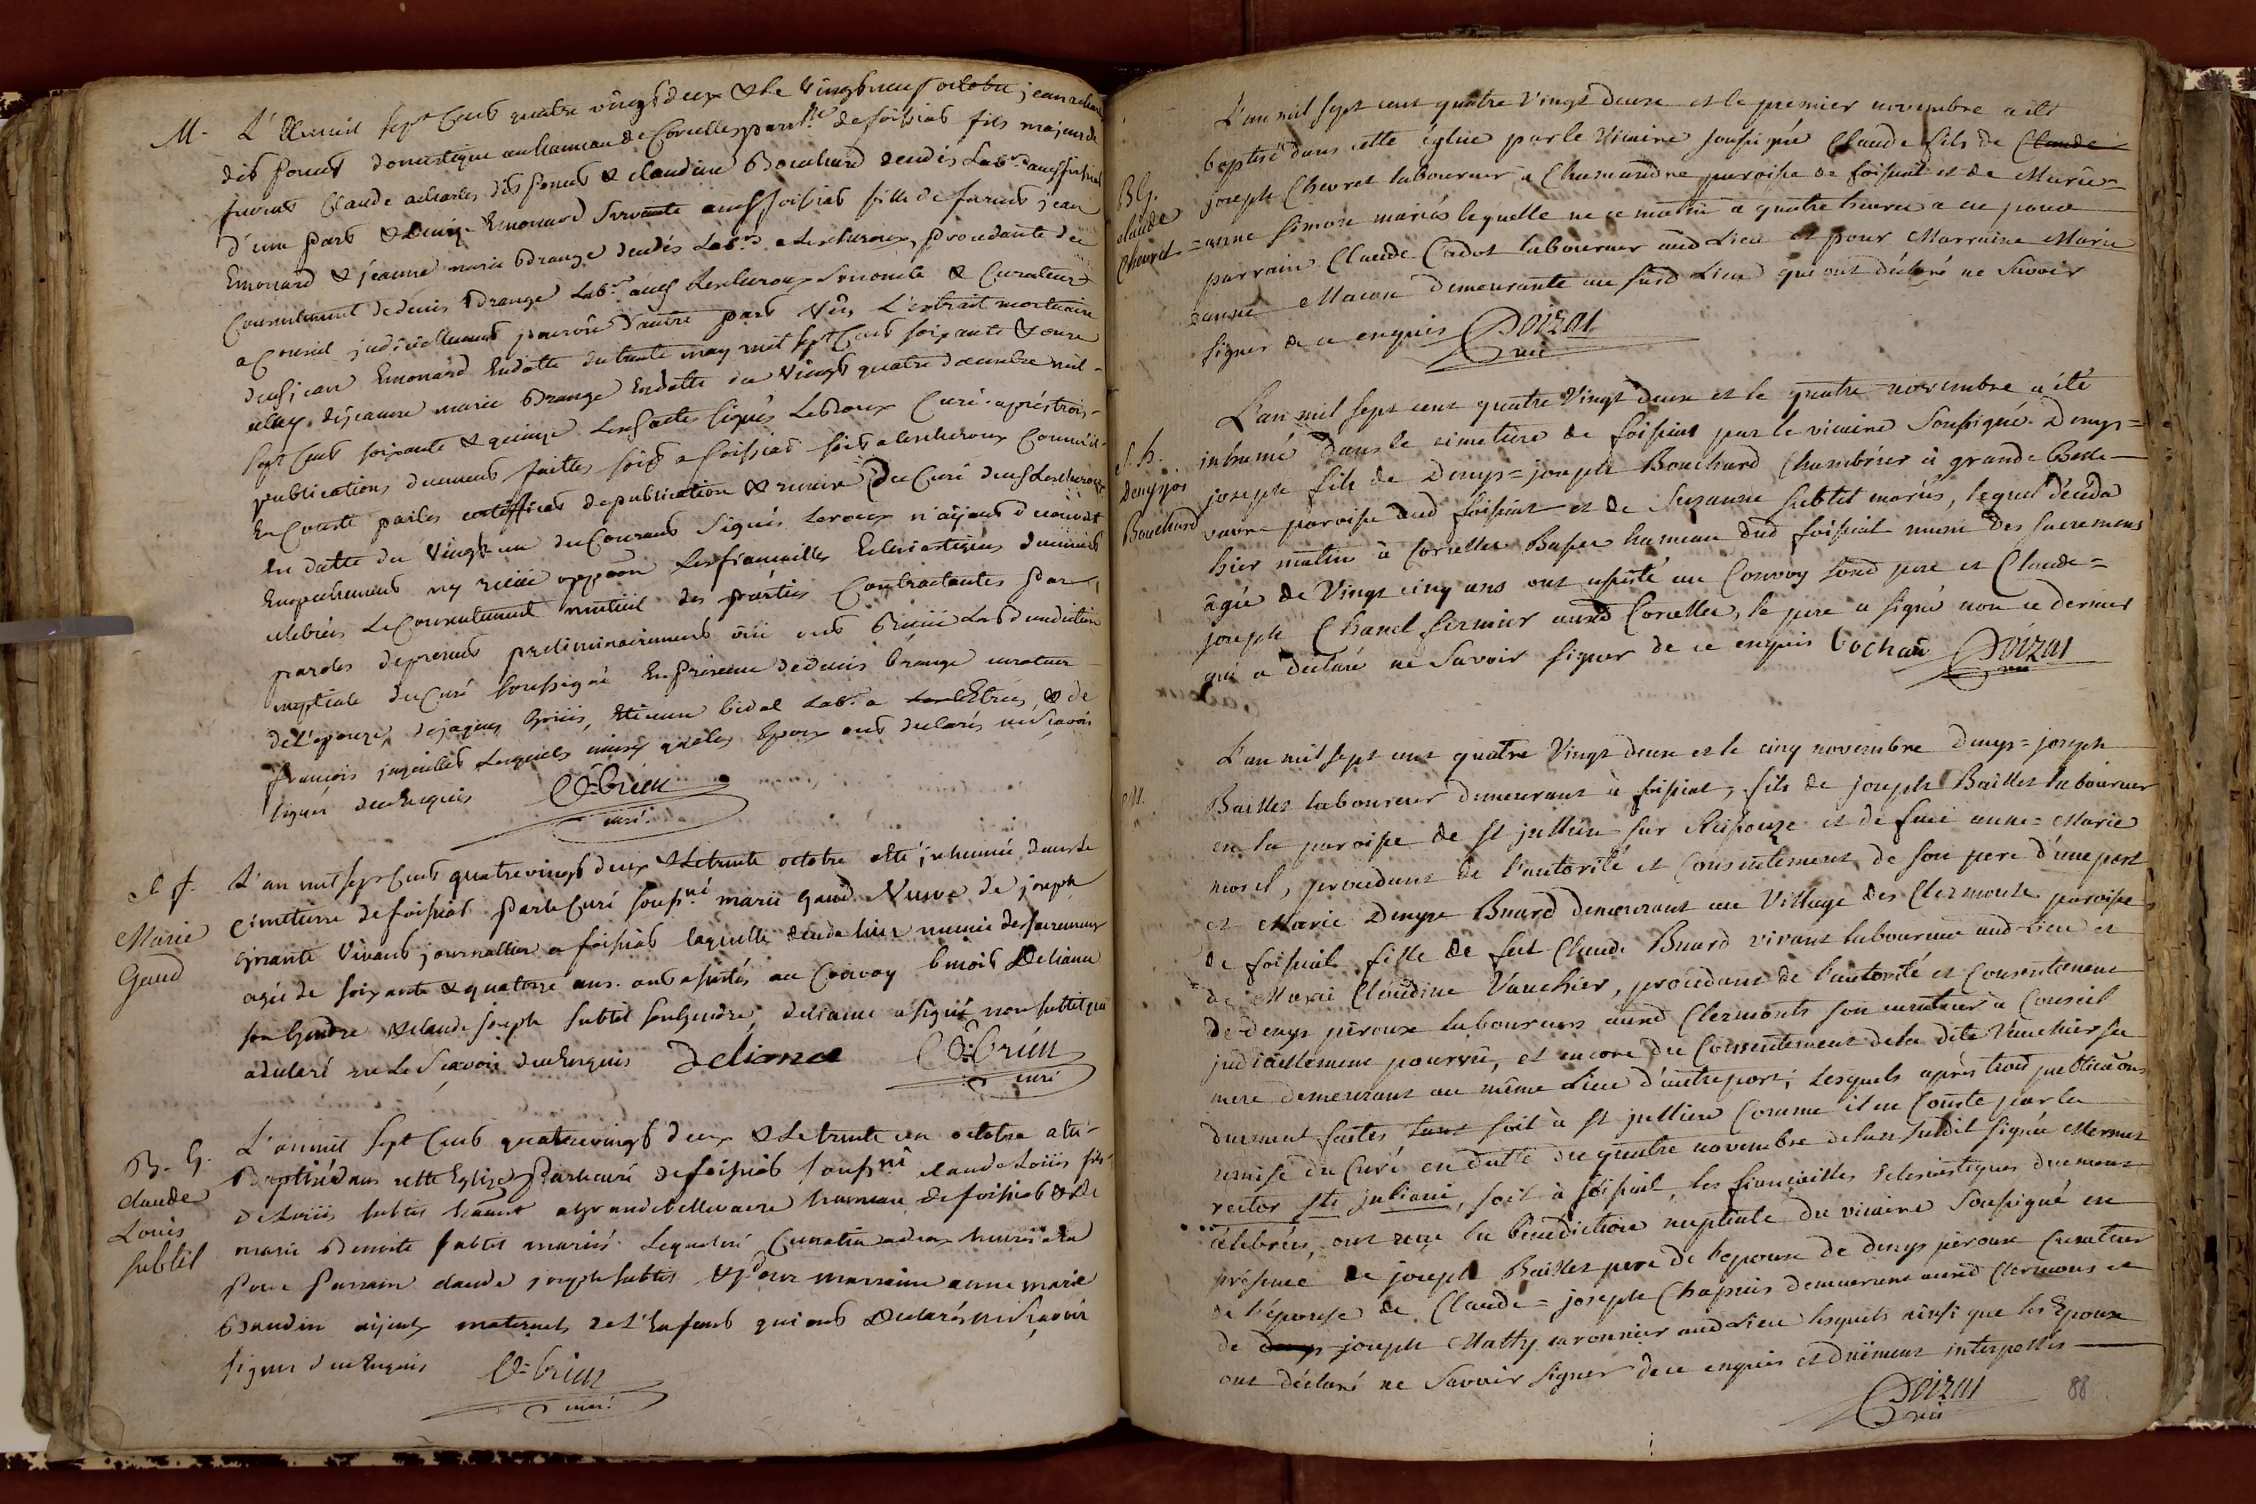 M. L'an mil sept cent quatre vingt deux & le vingt neuf octobre jean
dit donnestique au hameau de Corcelles paroisse de foissiat fils majeur de
furent Claude dit & claudine Bouchard decedés Lab.rs aud foissiat
d'une part & Emonard servante aud foissiat fille de furent jean
Emonard & jeanne marie Brange decedés Lab.rs a Lescheroux, procedante de
Consentement de denis Brange Lab.r aud Lescheroux & Curateur
a Conseil judiciellement pourvû d'autre part Vûs L'extrait mortuaire
dud jean Emonard En datte du trente may mil sept Cent soixante & onze
celuy de jeanne marie Brange En datte du vingt quatre decembre mil
sept Cent soixante & quinze signés Curé apres trois
publications duement faites soit a foissiat soit a lescheroux Comme il
En Conste par les certifficat de publication & remise du Curé dud Lescheroux
En datte du vingt un du Courant signés Leroux n'aÿant decouvert
Empechement ny reçüe opp.on Les fiancailles Eclesiastiques duement
celebrées Le Consentement mutüel des parties Contractantes par
paroles de present preliminairement oüi ont reçüe La Benediction
nuptiale du Curé soussigné En presence de denis brange curateur
de L'epouze, de jaques , Etienne bidal Lab.r a & de
francois Lesquels ainsy que les Epoux ont declarés ne sçavoir
signer de ce Enquis
curé
S. f.
Marie
Gaud
L'an mil sept Cent quatre vingt deux & Le trente octobre a été inhumée dans le
Cimetiere de foissiat par le Curé souss.né marie gaud Veuve de joseph
vivant journallier a foissiat laquelle deceda hier munie des sacremens
agée de soixante & quatorze ans. ont assistés au Convoy benoit Deliance
son Gendre & claude joseph subtil son Gendre, deliance a signé non subtil qui
a declaré ne Le sçavoir de ce Enquis Deliance
curé
B. G.
claude
Louis
subtil
L'an mil sept Cent quatre vingt deux & Le trente un octobre a été
Baptisé dans cette Eglise par le curé de foissiat souss.né claude Loüis fils
de Loüis subtil a grande bellevavre hameau de foissiat & de
marie Benoite subtil mariés. Lequel né Ce matin a deux heures a eu
pour parrain claude joseph subtil & pour marraine anne marie
aÿeux maternels de L'Enfant qui ont declarés ne sçavoir
signer de ce Enquis
curé
B G.
claude
Chevret
L'an mil sept cent quatre vingt deux et le premier novembre a été
baptisé dans cette église par le vicaire soussigné Claude fils de Claude
joseph Chevret laboureur à Chamandre paroisse de foissiat et de Marie=
=anne Simon mariés lequelle né ce matin à quatre heures a eu pour
parrain Claude Cadot laboureur aud Lieu et pour Marraine Marie
anne Macon demeurante au susd Lieu qui ont déclaré ne savoir
signer de ce enquis Poizat
vic
S. h.
Denys jos
Bouchard
L'an mil sept cent quatre vingt deux et le quatre novembre a été
inhumé dans le cimetiere de foissiat par le vicaire soussigné Denys=
joseph fils de Denys=joseph Bouchard Chambrier à grande Belle
vavre paroisse dud foissiat et de Suzanne Subtil mariés, lequel décéda
hier matin à Corcelles Basse hameau dud foissiat muni des sacremens
âgé de vingt cinq ans ont assisté au Convoy sond pere et Claude=
joseph Chanel fermier aud Corcelles, le pere a signé non ce dernier
qui a déclaré ne savoir signer de ce enquis Bochar Poizat
vic
M.
L'an mil sept cent quatre vingt deux et le cinq novembre Denys=joseph
Baillet laboureur demeurant à foissiat, fils de joseph Baillet laboureur
en la paroisse de St jullien sur Reissouze et de feüe anne=Marie
morel, procedant de l'autorité et Consentement de son pere d'une part
et Marie Denyse Buard demeurant au village des Clermonts paroisse
de foissiat fille de feu Claude Buard vivant laboureur aud lieu et
de Marie Claudine Vauchier, procédant de l'autorité et Consentement
de denys péroux laboureur aud Clermonts son curateur à Conseil
judiciellement pourvû, et encore du Consentement de la dite Vauchier sa
mere demeurant au même Lieu d'autre part; Lesquels après trois publications
duement faites tant soit à St jullien Comme il en Conste par la
remise du Curé en datte du quatre novembre de l'an susdit signée Mermet
rector Sti juliani, soit à foissiat, les fiancailles Eclesiastiques duement
célébrées, ont reçu la bénédiction nuptiale du vicaire soussigné en
présence de joseph Baillet pere de l'epoux de denys péroux Curateur
de l'épouse de Claude=joseph Chapuis demeurant aud Clermons et
de denys joseph Matty maronnier aud Lieu lesquels ainsi que les Epoux
ont déclaré ne savoir signer de ce enquis et duëment interpellés
Poizat
vic
88